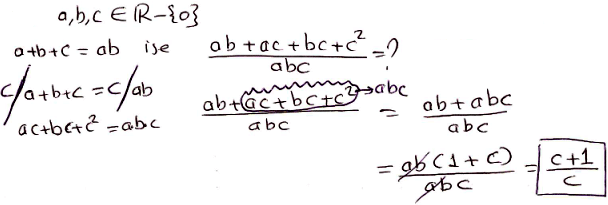 a,b,c ∈ ℝ-{0}
a+b+c = ab ise (ab+ac+bc+c²)/abc = ?
c/ a+b+c = c/ ab
ac+bc+c² = abc
(ab+ac+bc+c²)/abc → abc = (ab+abc)/abc
= ab(1+c)/abc = (c+1)/c